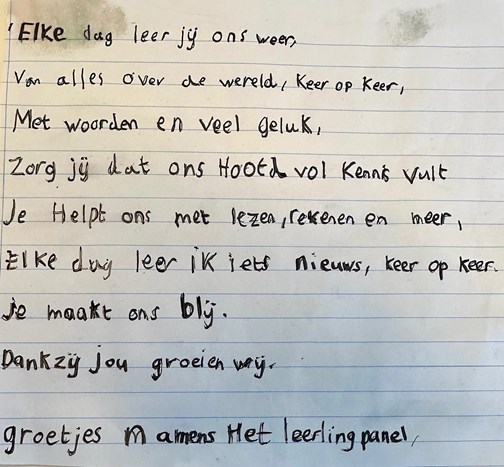 'Elke dag leer jij ons weer,
Van alles over de wereld, keer op keer,
Met woorden en veel geluk,
Zorg jij dat ons Hoofd vol Kennis vult
Je Helpt ons met lezen, rekenen en meer,
Elke dag leer ik iets nieuws, keer op keer.
Je maakt ons blij.
Dankzij jou groeien wij.
groetjes Namens Het leerlingpanel,